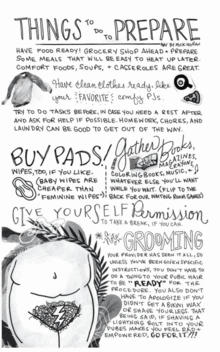 THINGS TO DO TO PREPARE
HAVE FOOD READY! GROCERY SHOP AHEAD + PREPARE
SOME MEALS THAT WILL BE EASY TO HEAT UP LATER.
COMFORT FOODS, SOUPS, + CASSEROLES ARE GREAT.
Have clean clothes ready, like
your FAVORITE comfy PJs.
TRY TO DO TASKS BEFORE, IN CASE YOU NEED A REST AFTER,
AND ASK FOR HELP IF POSSIBLE. HOMEWORK, CHORES, AND
LAUNDRY CAN BE GOOD TO GET OUT OF THE WAY.
BUY PADS!
WIPES, TOO, IF YOU LIKE.
(BABY WIPES ARE
CHEAPER THAN
FEMININE WIPES)
Gather Books,
MAGAZINES,
CRAYONS,
COLORING BOOKS, MUSIC, +
WHATEVER ELSE YOU'LL WANT
WHILE YOU WAIT. (FLIP TO THE
BACK FOR OUR WAITING ROOM GAMES)
GIVE YOURSELF Permission
TO TAKE A BREAK, IF YOU CAN.
GROOMING
YOUR PROVIDER HAS SEEN IT ALL, SO
UNLESS YOU'VE BEEN GIVEN SPECIFIC
INSTRUCTIONS, YOU DON'T HAVE TO
DO A THING TO YOUR PUBIC HAIR
TO BE "READY" FOR THE
PROCEDURE. YOU ALSO DON'T
HAVE TO APOLOGIZE IF YOU
DIDN'T GET A BIKINI WAX
OR SHAVE YOUR LEGS. THAT
BEING SAID, IF SHAVING A
LIGHTNING BOLT INTO YOUR
PUBES MAKES YOU FEEL RAD +
EMPOWERED, GO FOR IT!!!